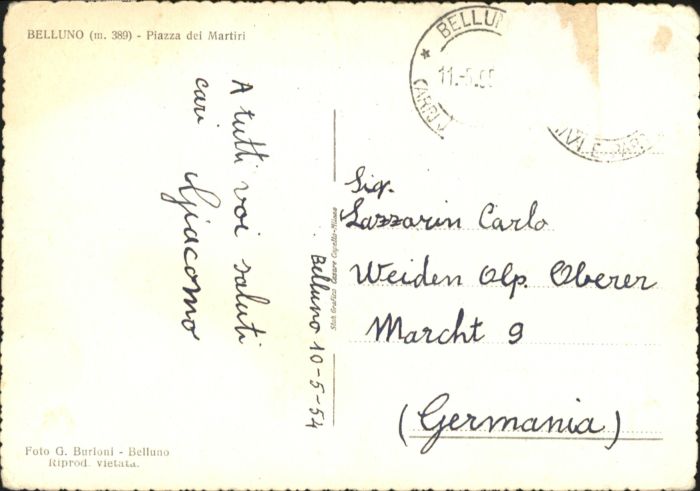 BELLUNO (m. 389) - Piazza dei Martiri
BELLU
11.-5.
A tutti voi saluti
cari Giacomo
Belluno 10-5-54
Stab. Grafico Cesare Capello-Milano
Sig.
Lazzarin Carlo
Weiden Olp. Oberer
Marcht 9
(Germania)
Foto G. Burloni - Belluno
Riprod. vietata.